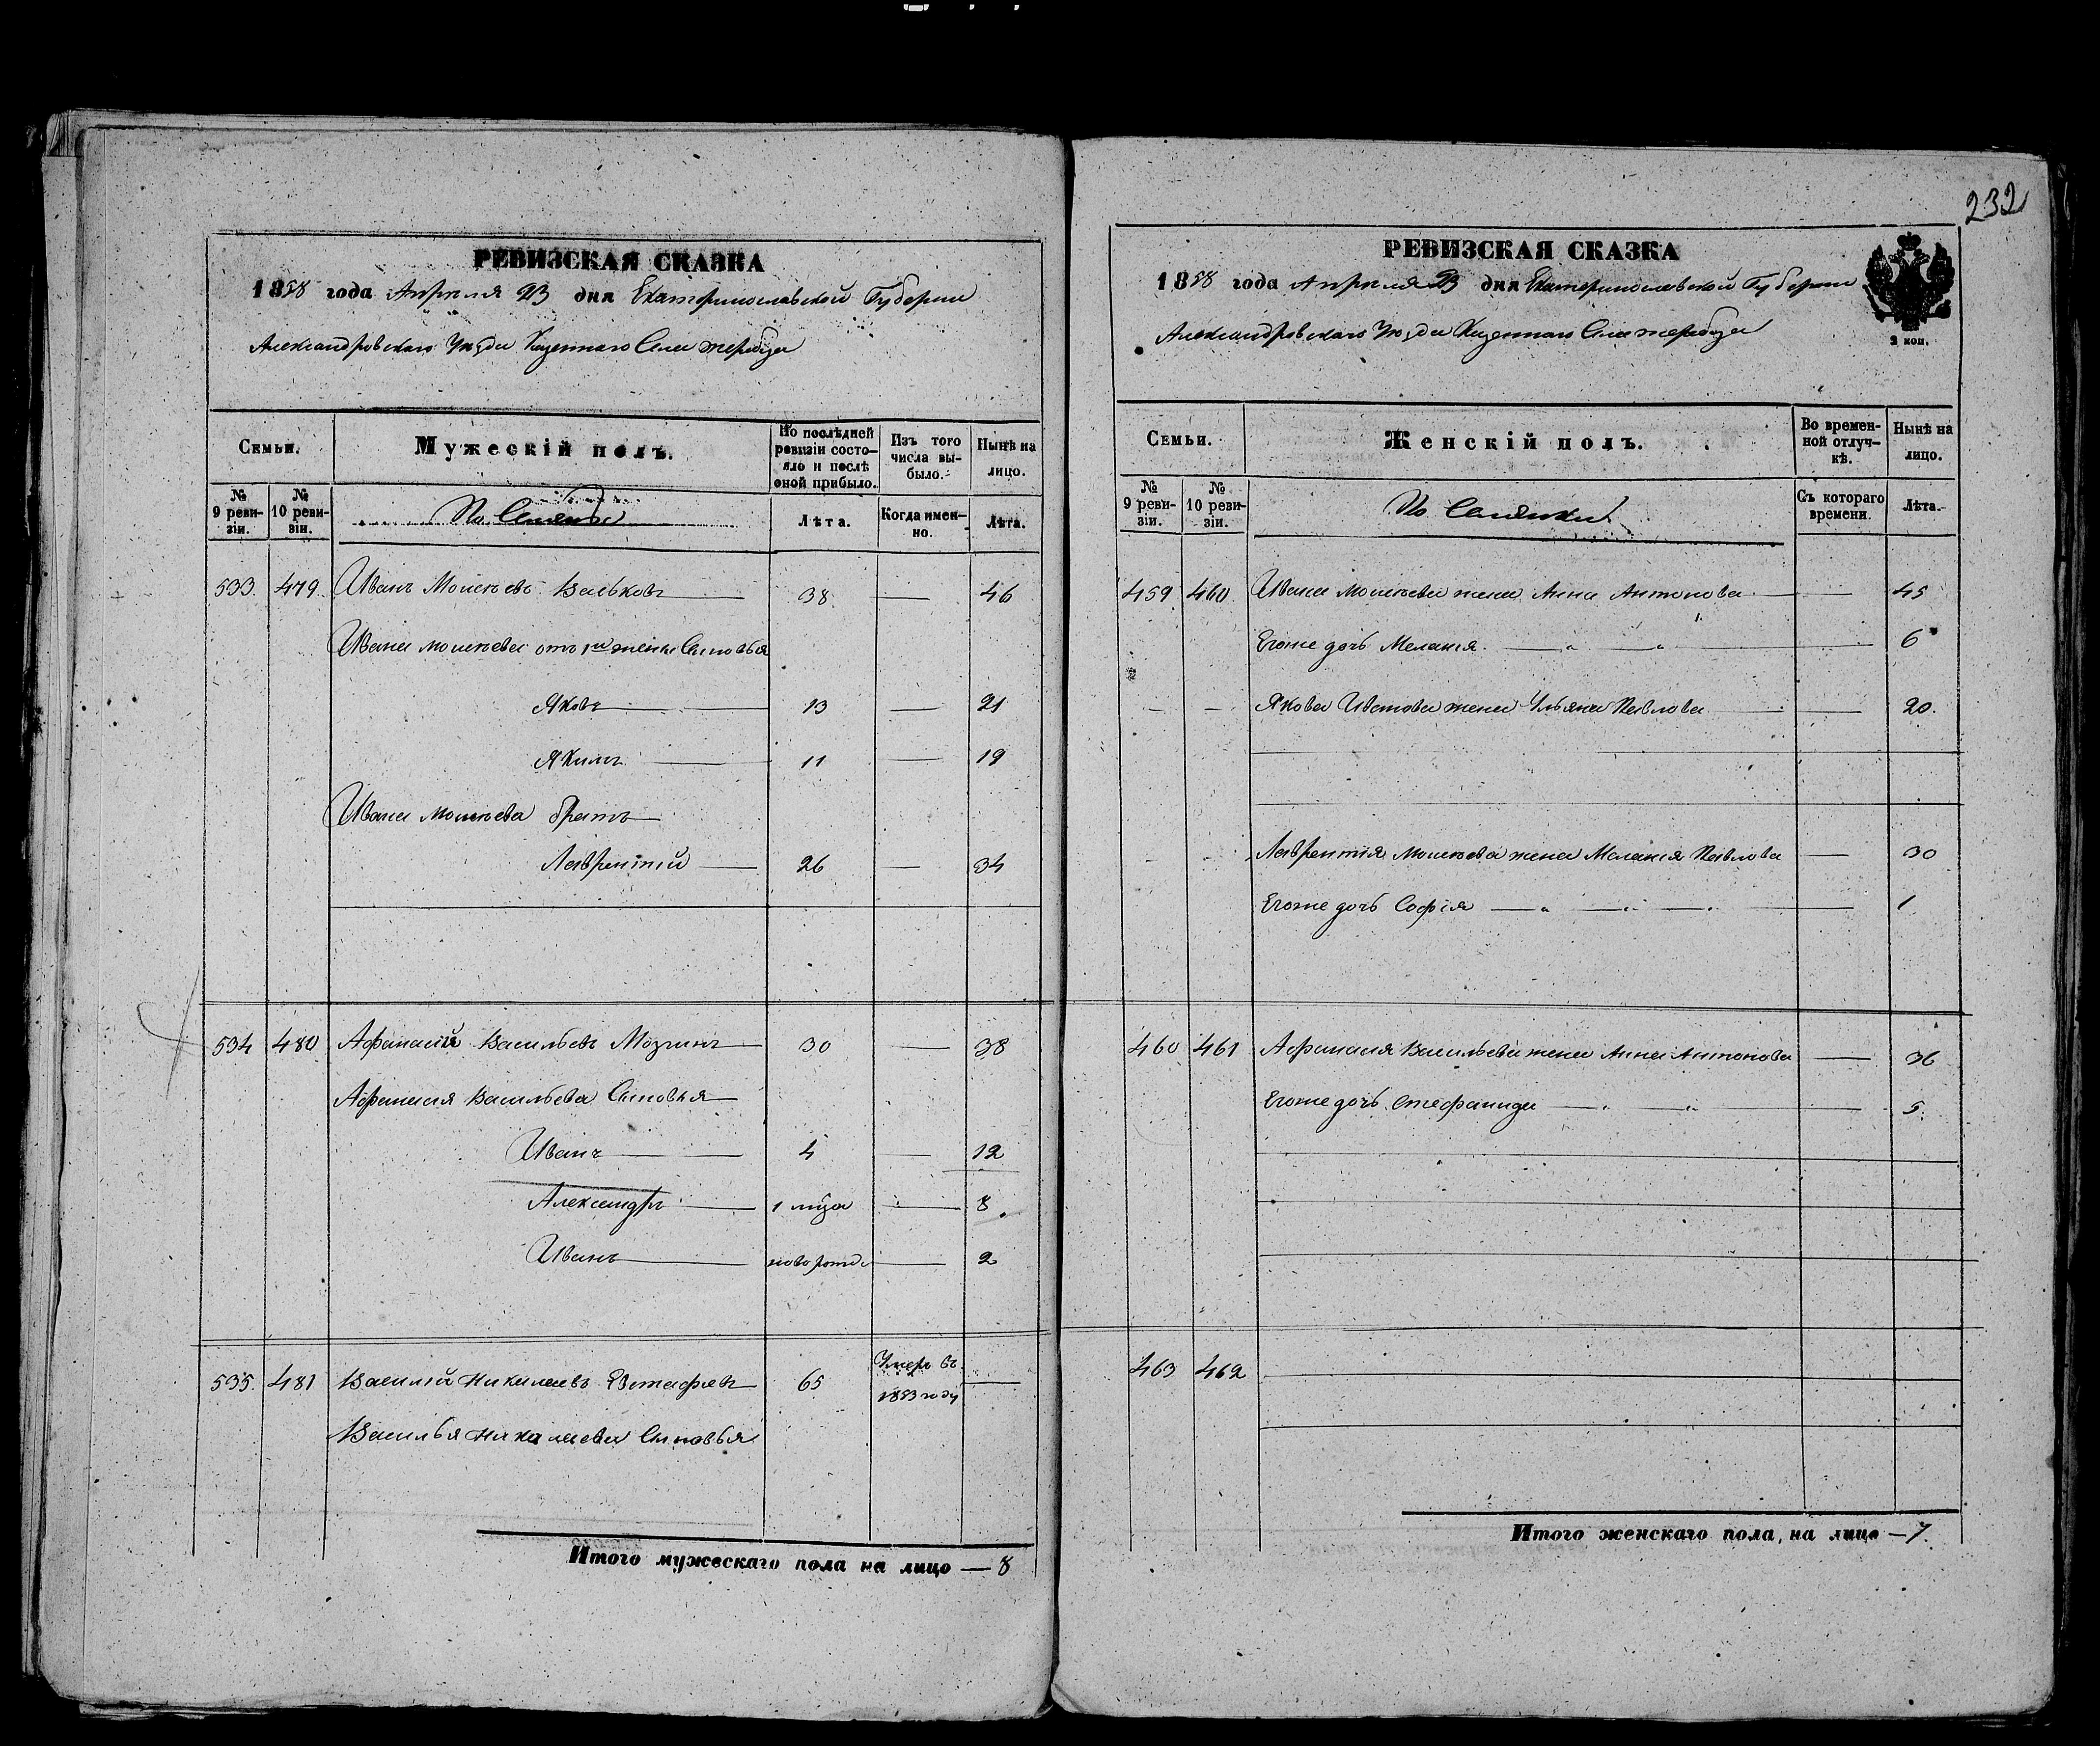 232
РЕВИЗСКАЯ СКАЗКА
1858 года Апреля 23 дня Екатеринославской Губернии
Александровскаго Уезда Казеннаго Села Жеребца
Семьи.
Мужескій полъ.
По послѣдней ревизіи состояло и послѣ оной прибыло.
Изъ того числа выбыло.
Нынѣ на лицо.
№ 9 ревизіи.
№ 10 ревизіи.
Лѣта.
Когда именно.
Лѣта.
533. 479. Иванъ Моисеевъ Вальковъ 38. — 46
Ивана Моисеева отъ 1й жены Сыновья
Яковъ 13 — 21
Якимъ 11 — 19
Ивана Моисеева братъ
Лаврентій 26 — 34
534 480 Афанасій Васильевъ Мозгинъ 30 — 38
Афанасия Васильева Сыновья
Иванъ 4 — 12
Александръ 1 — 8
Иванъ новорожд — 2
535. 481 Василій Николаевъ Евстафьев 65 Умеръ въ 1853 году —
Василья Николаева Сыновья
Итого мужескаго пола на лицо — 8
РЕВИЗСКАЯ СКАЗКА
1858 года Апреля 23 дня Екатеринославской Губернии
Александровскаго Уезда Казеннаго Села Жеребца
2 коп.
Семьи.
Женскій полъ.
Во временной отлучкѣ.
Нынѣ на лицо.
№ 9 ревизіи.
№ 10 ревизіи.
Съ котораго времени.
Лѣта.
459 460 Ивана Моисеева жена Анна Антонова — 45
Егоже дочь Мелания — " — " — 6
— — Якова Иванова жена Ульяна Павлова — 20.
- - Лаврентия Моисеева жена Мелания Павлова — 30
Егоже дочь София — " — " — " — 1
460 461 Афанасия Васильева жена Анна Антонова — 36
Егоже дочь Стефанида — " — " — 5.
463 462
Итого женскаго пола, на лицо — 7.